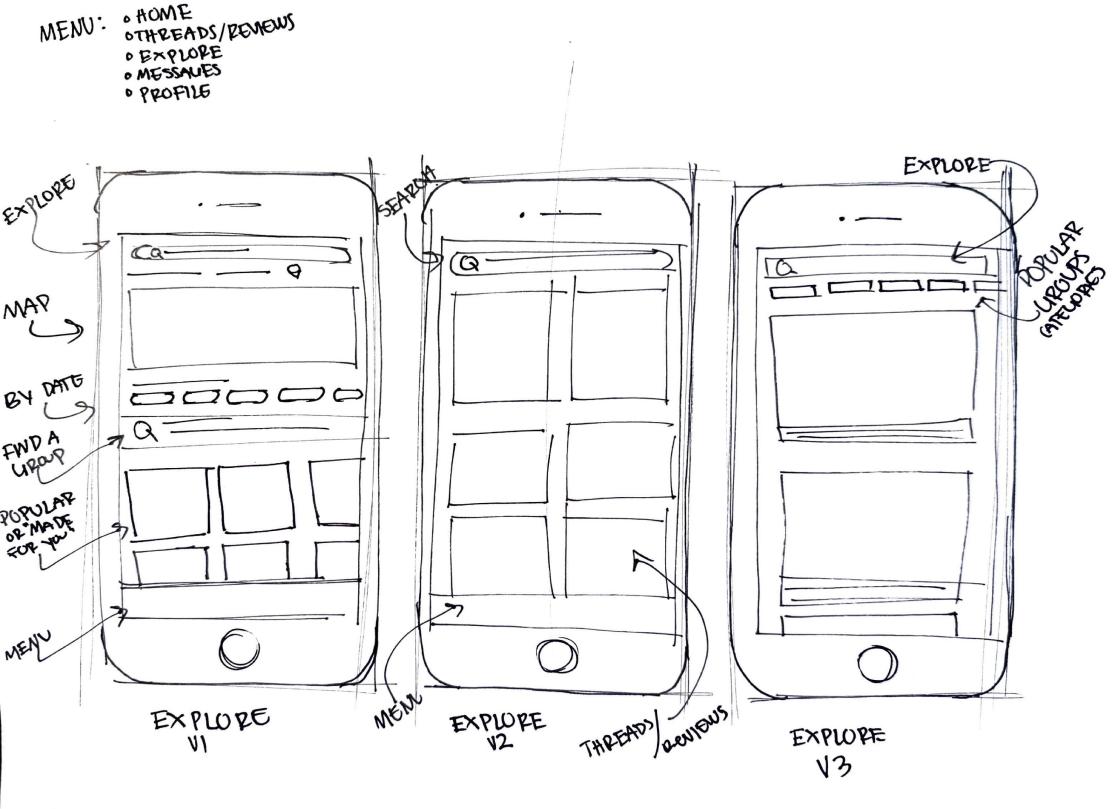 MENU: • HOME
• THREADS/REVIEWS
• EXPLORE
• MESSAGES
• PROFILE
EXPLORE
MAP
BY DATE
FIND A
GROUP
POPULAR
OR "MADE
FOR YOU"
MENU
EXPLORE
V1
SEARCH
MENU
EXPLORE
V2
THREADS/
REVIEWS
EXPLORE
POPULAR
GROUPS
CATEGORIES
EXPLORE
V3